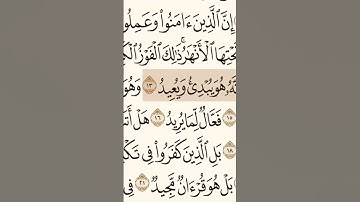 إِنَّ ٱلَّذِينَ ءَامَنُوا۟ وَعَمِلُوا
تَحْتِهَا ٱلْأَنْهَٰرُ ۚ ذَٰلِكَ ٱلْفَوْزُ ٱلْكَ
هُۥ هُوَ يُبْدِئُ وَيُعِيدُ ١٣ وَهُوَ
١٥ فَعَّالٌ لِّمَا يُرِيدُ ١٦ هَلْ أَتَ
١٨ بَلِ ٱلَّذِينَ كَفَرُوا۟ فِى تَكْ
بَلْ هُوَ قُرْءَانٌ مَّجِيدٌ ٢١ فِى